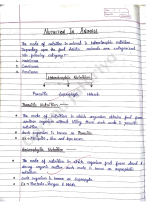 Nutrition In Animals
The mode of nutrition in animal is heterotrophic nutrition.
Depending upon the food habits animals are categorised
into following category :-
Herbivores
Carnivores
Omnivores
Heterotrophic Nutrition
Parasitic Saprophytic Holozoic
Parasitic Nutrition :-
The mode of nutrition in which organism obtain food from
another organism without killing them such mode is parasitic
nutrition.
Such organism is known as Parasite.
Saprophytic Nutrition :-
The mode of nutrition in which organism get food from dead &
decay organic matter such mode is known as saprophytic
nutrition.
Such organism is known as Saprophyte.
Ex → Bacteria, Fungus &